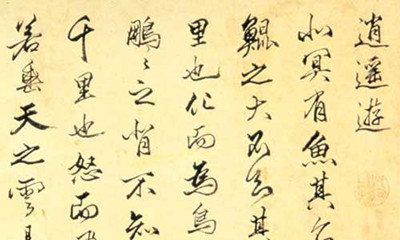 逍遥遊
北冥有魚其名
鯤之大不知其
里也化而為鳥
鵬〻之背不知
千里也怒而飛
若垂天之雲是